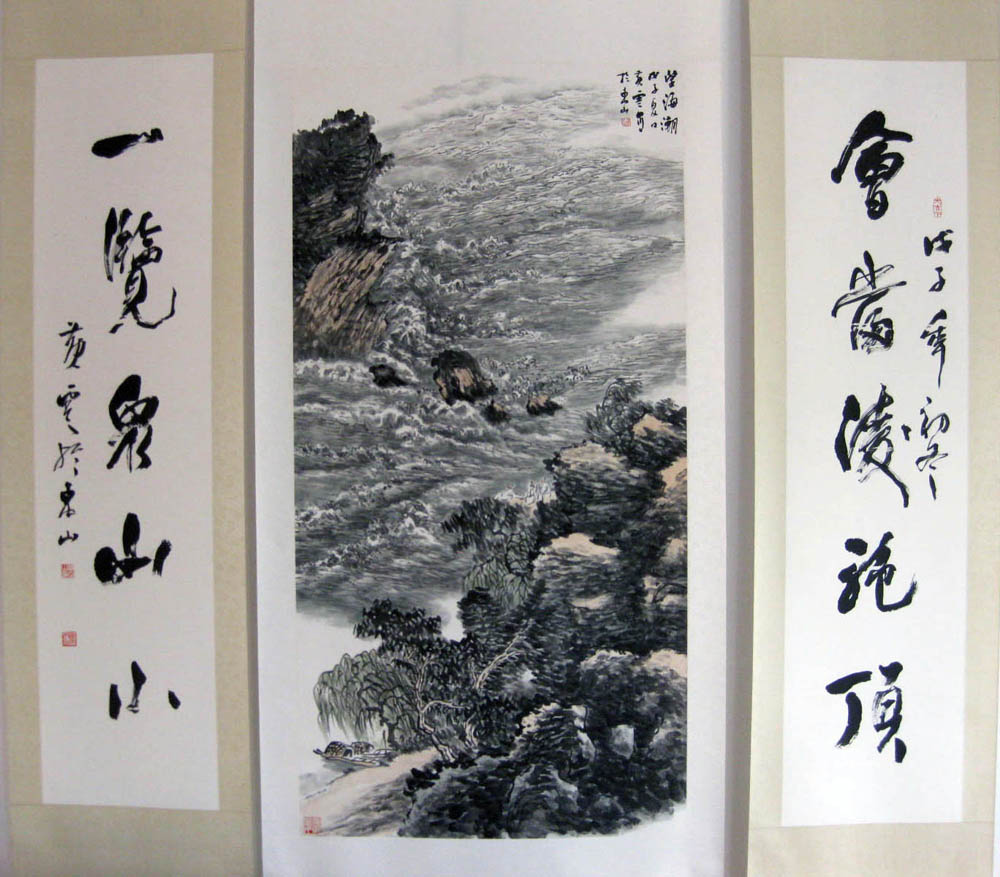 會當淩絶頂
戊子年初冬
望海潮
戊子夏日
黄雲寫
於東山
一覽衆山小
黄雲於東山